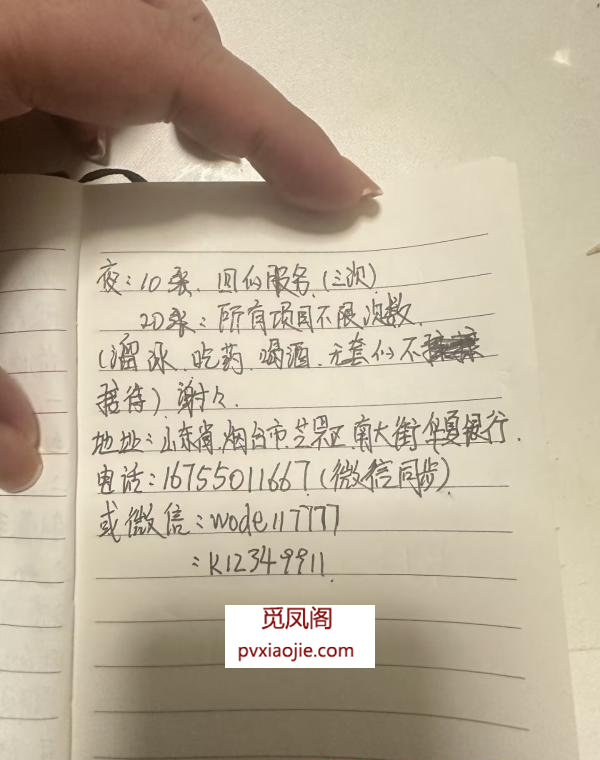 夜:10张.回似服务.(三次)
20张:所有项目不限次数.
(溜冰.吃药.喝酒.无套似不
接待)谢谢.
地址:山东省.烟台市.芝罘区.南大街华夏银行.
电话:16755011667.(微信同步)
或微信:wode117777
:K12349911.
觅凤阁
pvxiaojie.com